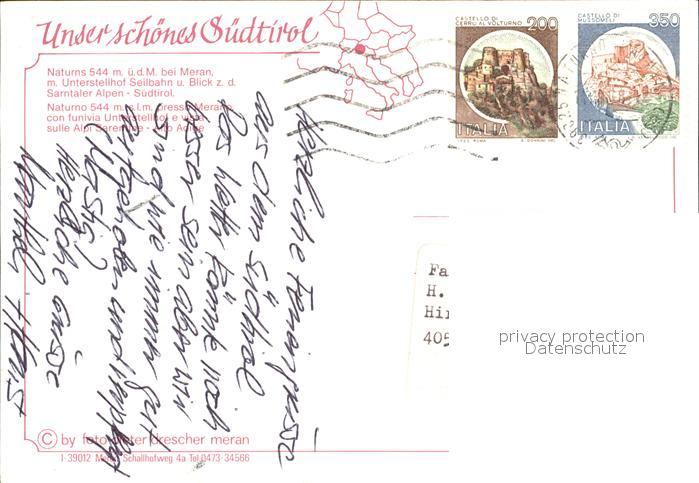 Unser schönes Südtirol
Naturns 544 m. ü.d.M. bei Meran,
m. Unterstellhof Seilbahn u. Blick z. d.
Sarntaler Alpen - Südtirol.
Naturno 544 m.s.l.m. presso Merano
con funivia Unterstellhof e vista
sulle Alpi Sarentine - Alto Adige
CASTELLO DI
CERRO AL VOLTURNO
200
ITALIA
CASTELLO DI
MUSSOMELI
350
ITALIA
Herzliche Feriengrüsse
aus dem Südtirol
Das Wetter könnte noch
besser sein aber wir
sind wie immer gut
aufgehoben und
Herzliche Grüsse
Hans
Fa
H.
Hi
405
privacy protection
Datenschutz
© by foto dieter drescher meran
I-39012 Meran Schallhofweg 4a Tel 0473-34566